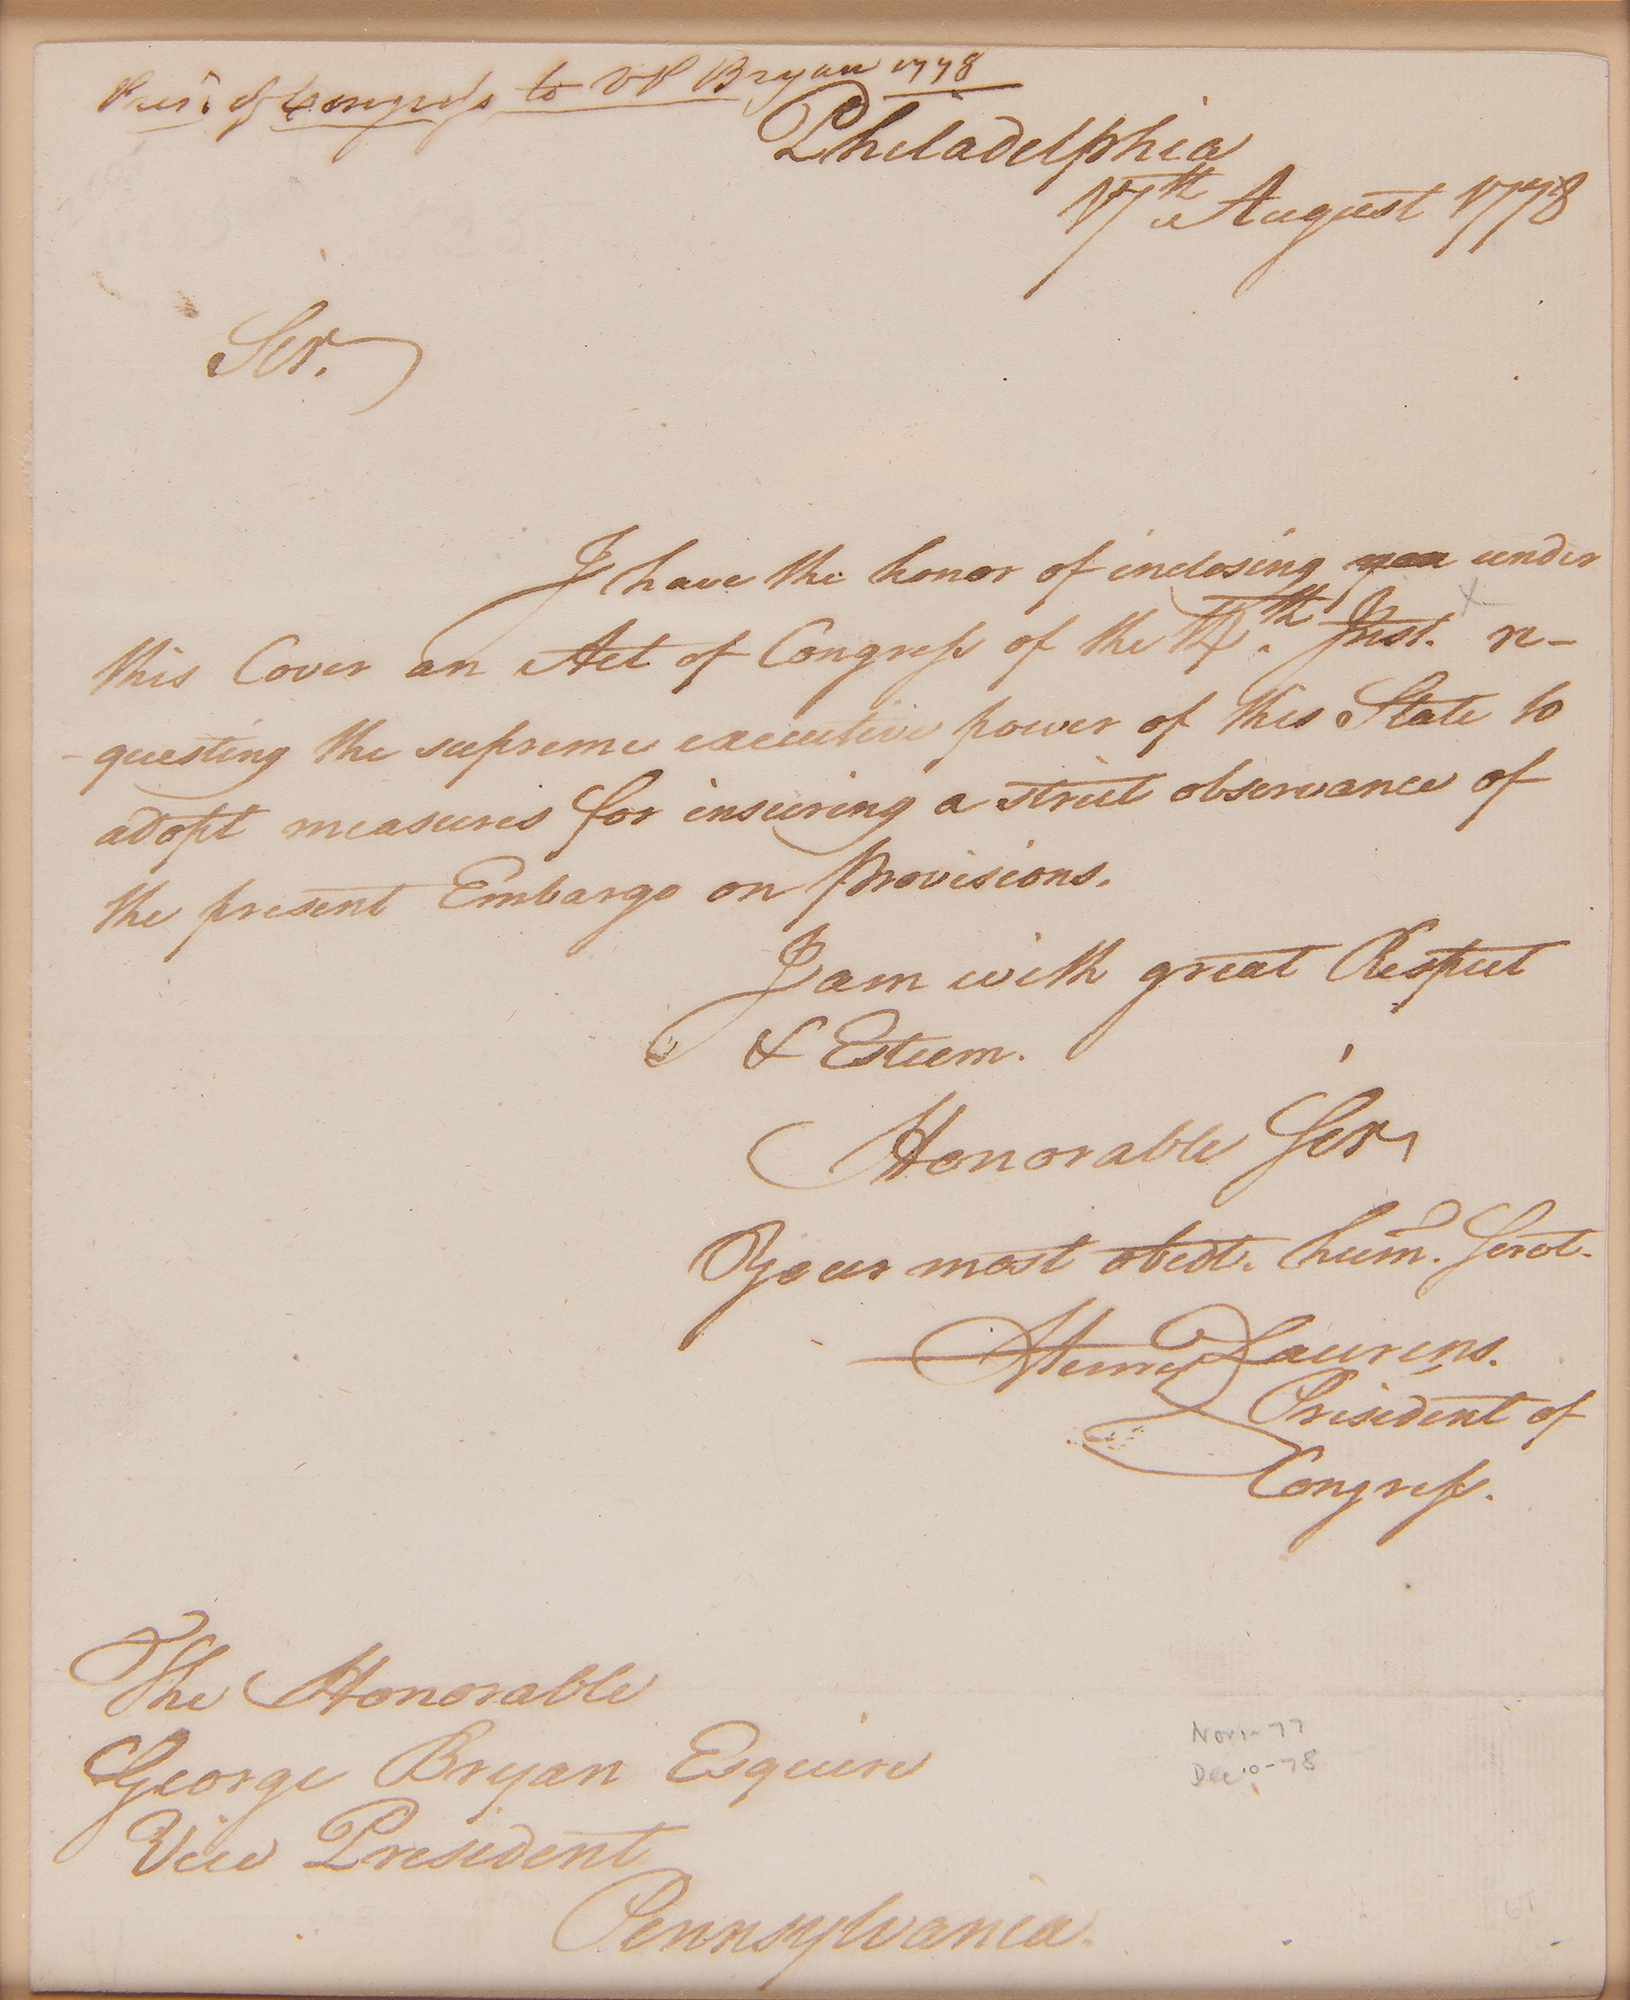 Presi. of Congress to VP Bryan 1778
Philadelphia
17th. August 1778
Sir.
I have the honor of inclosing you under
this Cover an Act of Congress of the 14th. Inst. re-
-questing the supreme executive power of this State to
adopt measures for insuring a strict observance of
the present Embargo on Provisions.
I am with great Respect
& Esteem.
Honorable Sir,
Your most obedt. hum. Servt.
Henry Laurens.
President of
Congress.
The Honorable
George Bryan Esquire
Vice President
Pennsylvania.
Nov 1-77
Dec 10-78